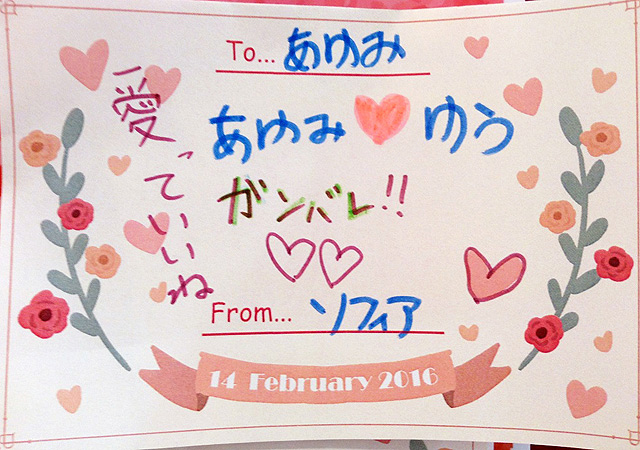 To... あゆみ
あゆみ♥ゆう
ガンバレ!!
♡♡
From... ソフィア
14 February 2016
愛っていいね